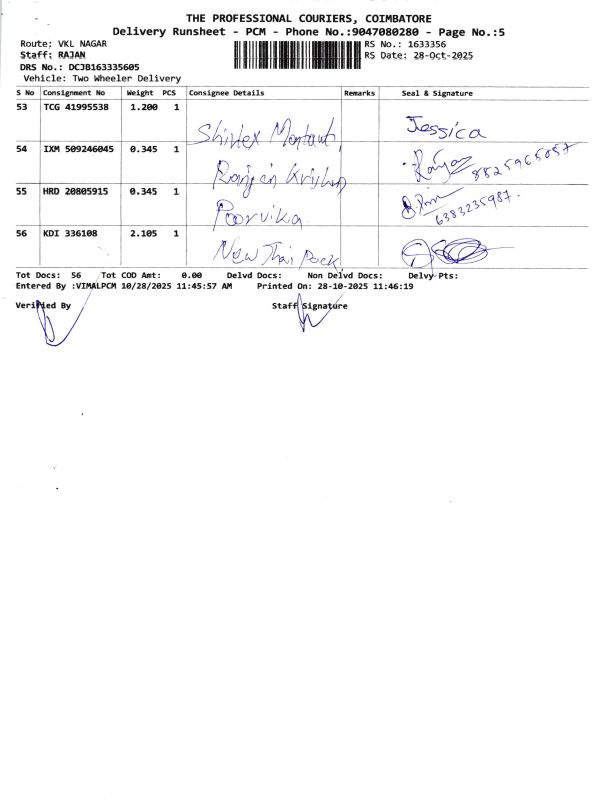 THE PROFESSIONAL COURIERS, COIMBATORE
Delivery Runsheet - PCM - Phone No.:9047080280 - Page No.:5
Route: VKL NAGAR RS No.: 1633356
Staff: RAJAN RS Date: 28-Oct-2025
DRS No.: DCJB163335605
Vehicle: Two Wheeler Delivery
S No Consignment No Weight PCS Consignee Details Remarks Seal & Signature
53 TCG 41995538 1.200 1 Jessica
54 IXM 509246045 0.345 1 8825965057
55 HRD 20805915 0.345 1 Poorvika 6383235987.
56 KDI 336108 2.105 1 New Thai Pack
Tot Docs: 56 Tot COD Amt: 0.00 Delvd Docs: Non Delvd Docs: Delvy Pts:
Entered By :VIMALPCM 10/28/2025 11:45:57 AM Printed On: 28-10-2025 11:46:19
Verified By Staff Signature